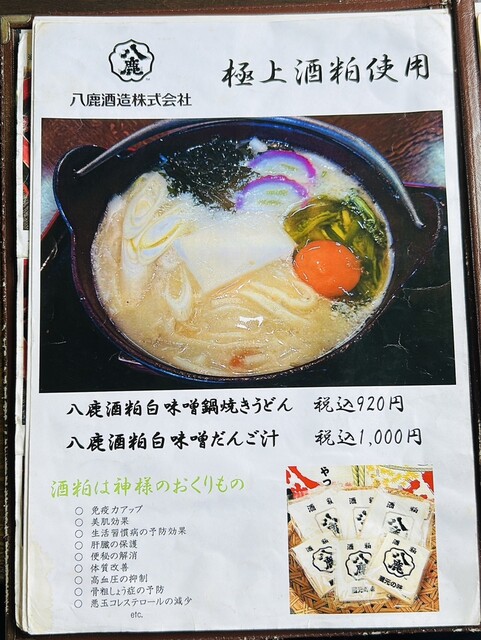 八鹿
八鹿酒造株式会社
極上酒粕使用
八鹿酒粕白味噌鍋焼きうどん 税込920円
八鹿酒粕白味噌だんご汁 税込1,000円
酒粕は神様のおくりもの
○ 免疫力アップ
○ 美肌効果
○ 生活習慣病の予防効果
○ 肝臓の保護
○ 便秘の解消
○ 体質改善
○ 高血圧の抑制
○ 骨粗しょう症の予防
○ 悪玉コレステロールの減少
etc.
やつ
酒粕
八鹿
酒粕
八鹿
酒粕
八鹿
蔵元の味